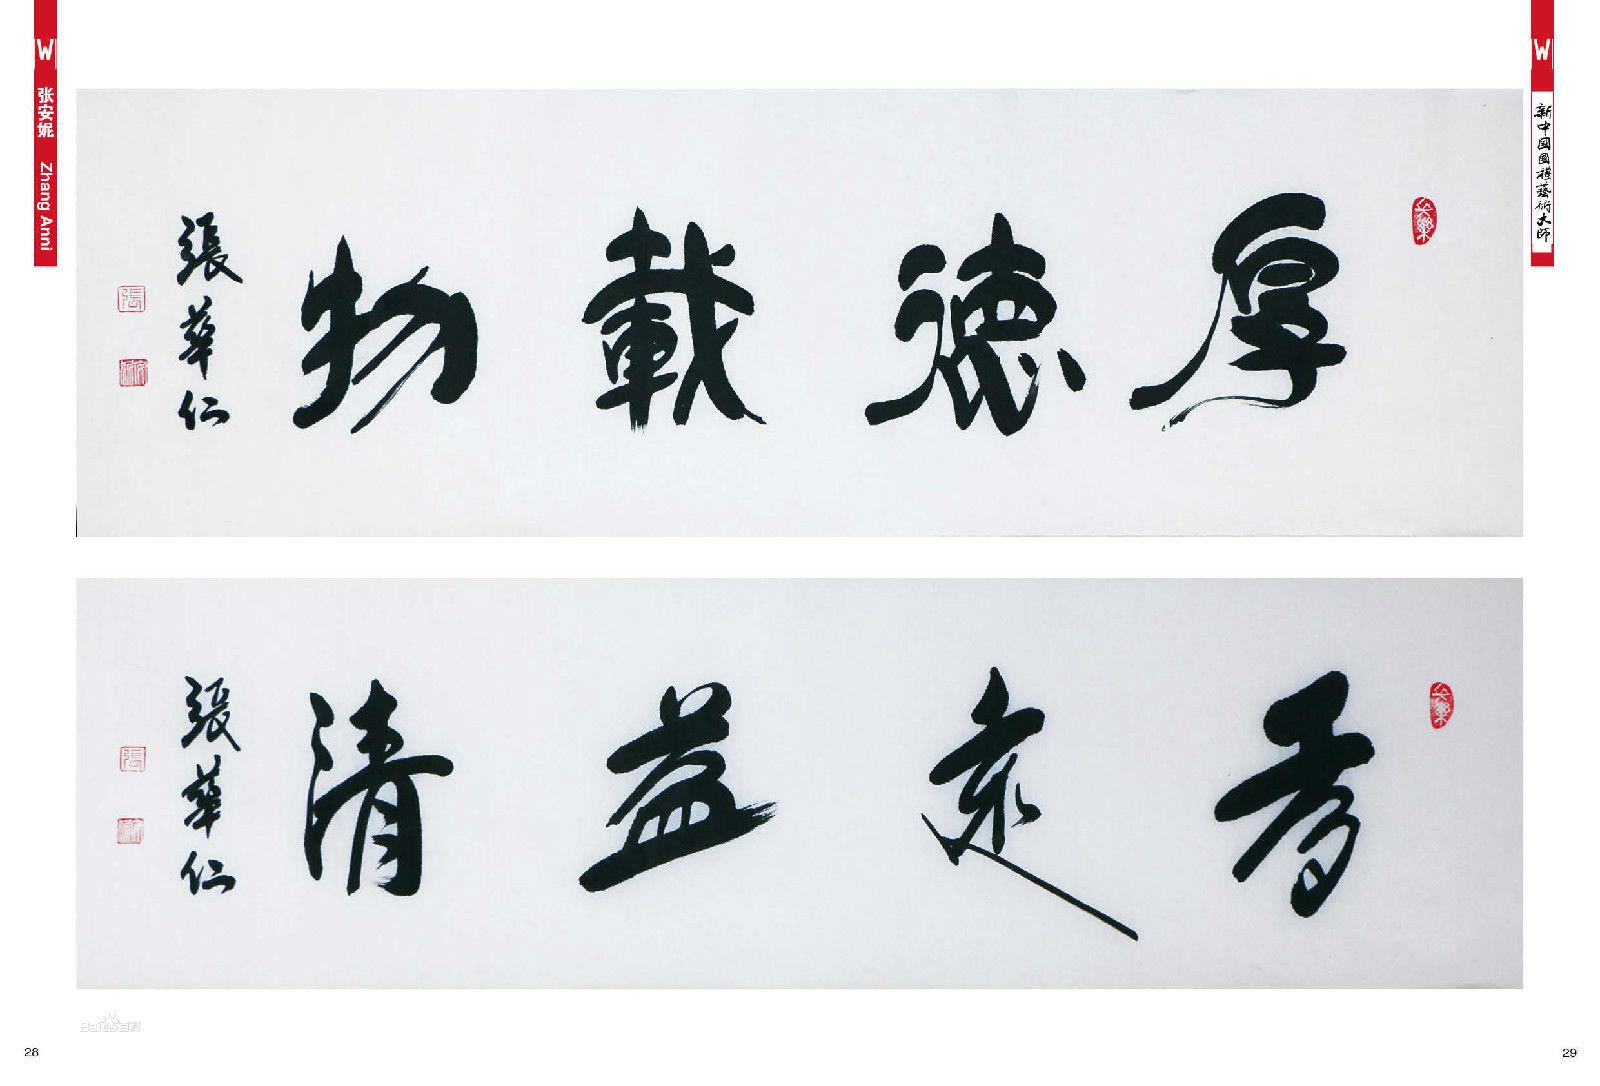 W
张安妮 Zhang Anni
W
新中國國禮藝術大師
厚德載物
張華仁
張
香遠益清
張華仁
張
Baidu百科
28
29